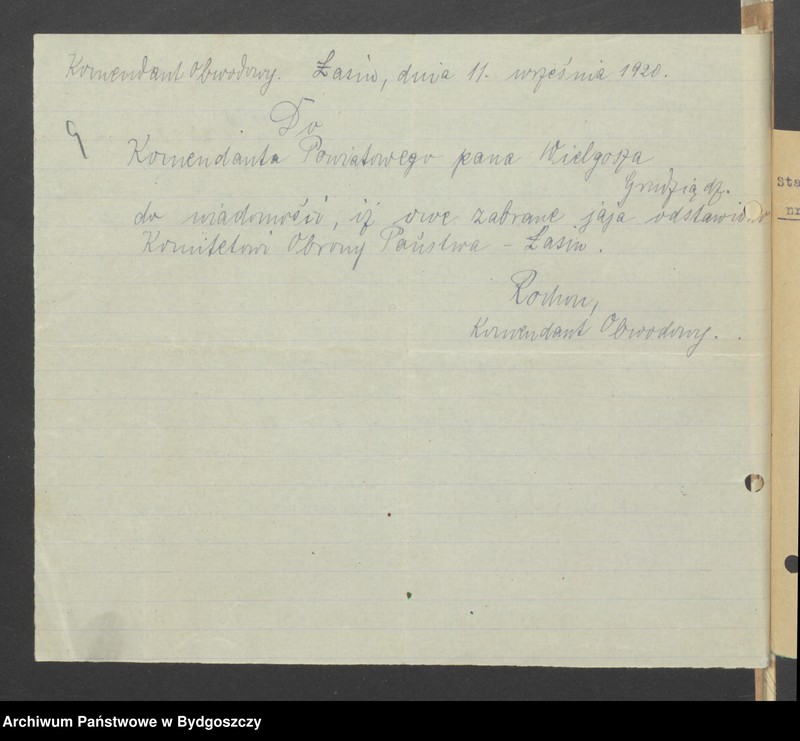 Komendant Obwodowy. Łasin, dnia 11. września 1920.
9
Do
Komendanta Powiatowego pana Wielgosza
Grudziądz.
do wiadomości, iż owe zabrane jaja odstawiono
Komitetowi Obrony Państwa - Łasin.
Rochon,
Komendant Obwodowy.
Sta
nr
Archiwum Państwowe w Bydgoszczy